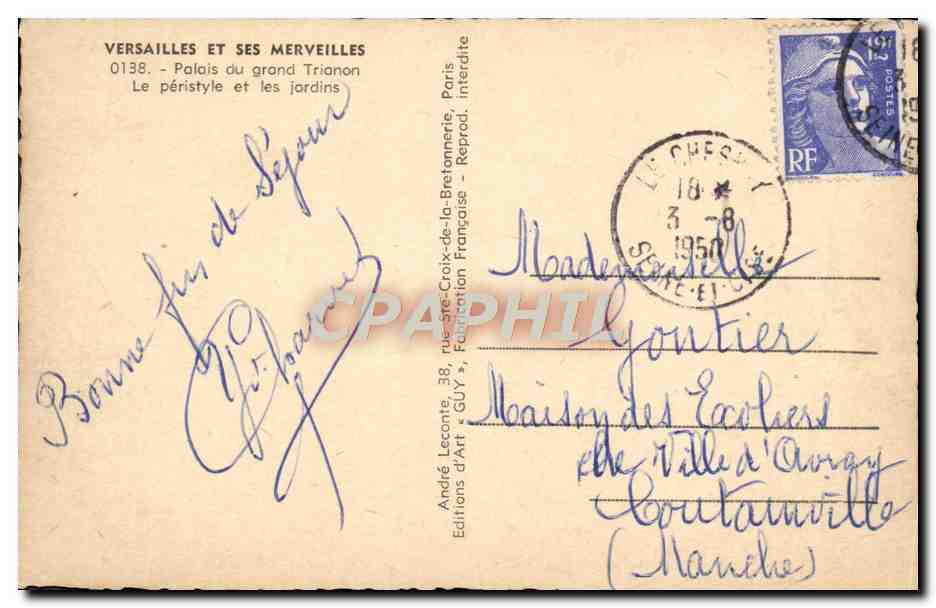 VERSAILLES ET SES MERVEILLES
0138. - Palais du grand Trianon
Le péristyle et les jardins
Bonne fin de Séjour
André Leconte, 38, rue Ste-Croix-de-la-Bretonnerie, Paris
Editions d'Art « GUY », Fabrication Française - Reprod. interdite
12F
POSTES
RF
LE CHESNAY
18 *
3 -8
1950
SEINE-ET-OISE
18
3
19
SEINE
CPAPHIL
Mademoiselle
Gontier
Maison des Ecoliers
de Ville d'Avray
Coutainville
(Manche)